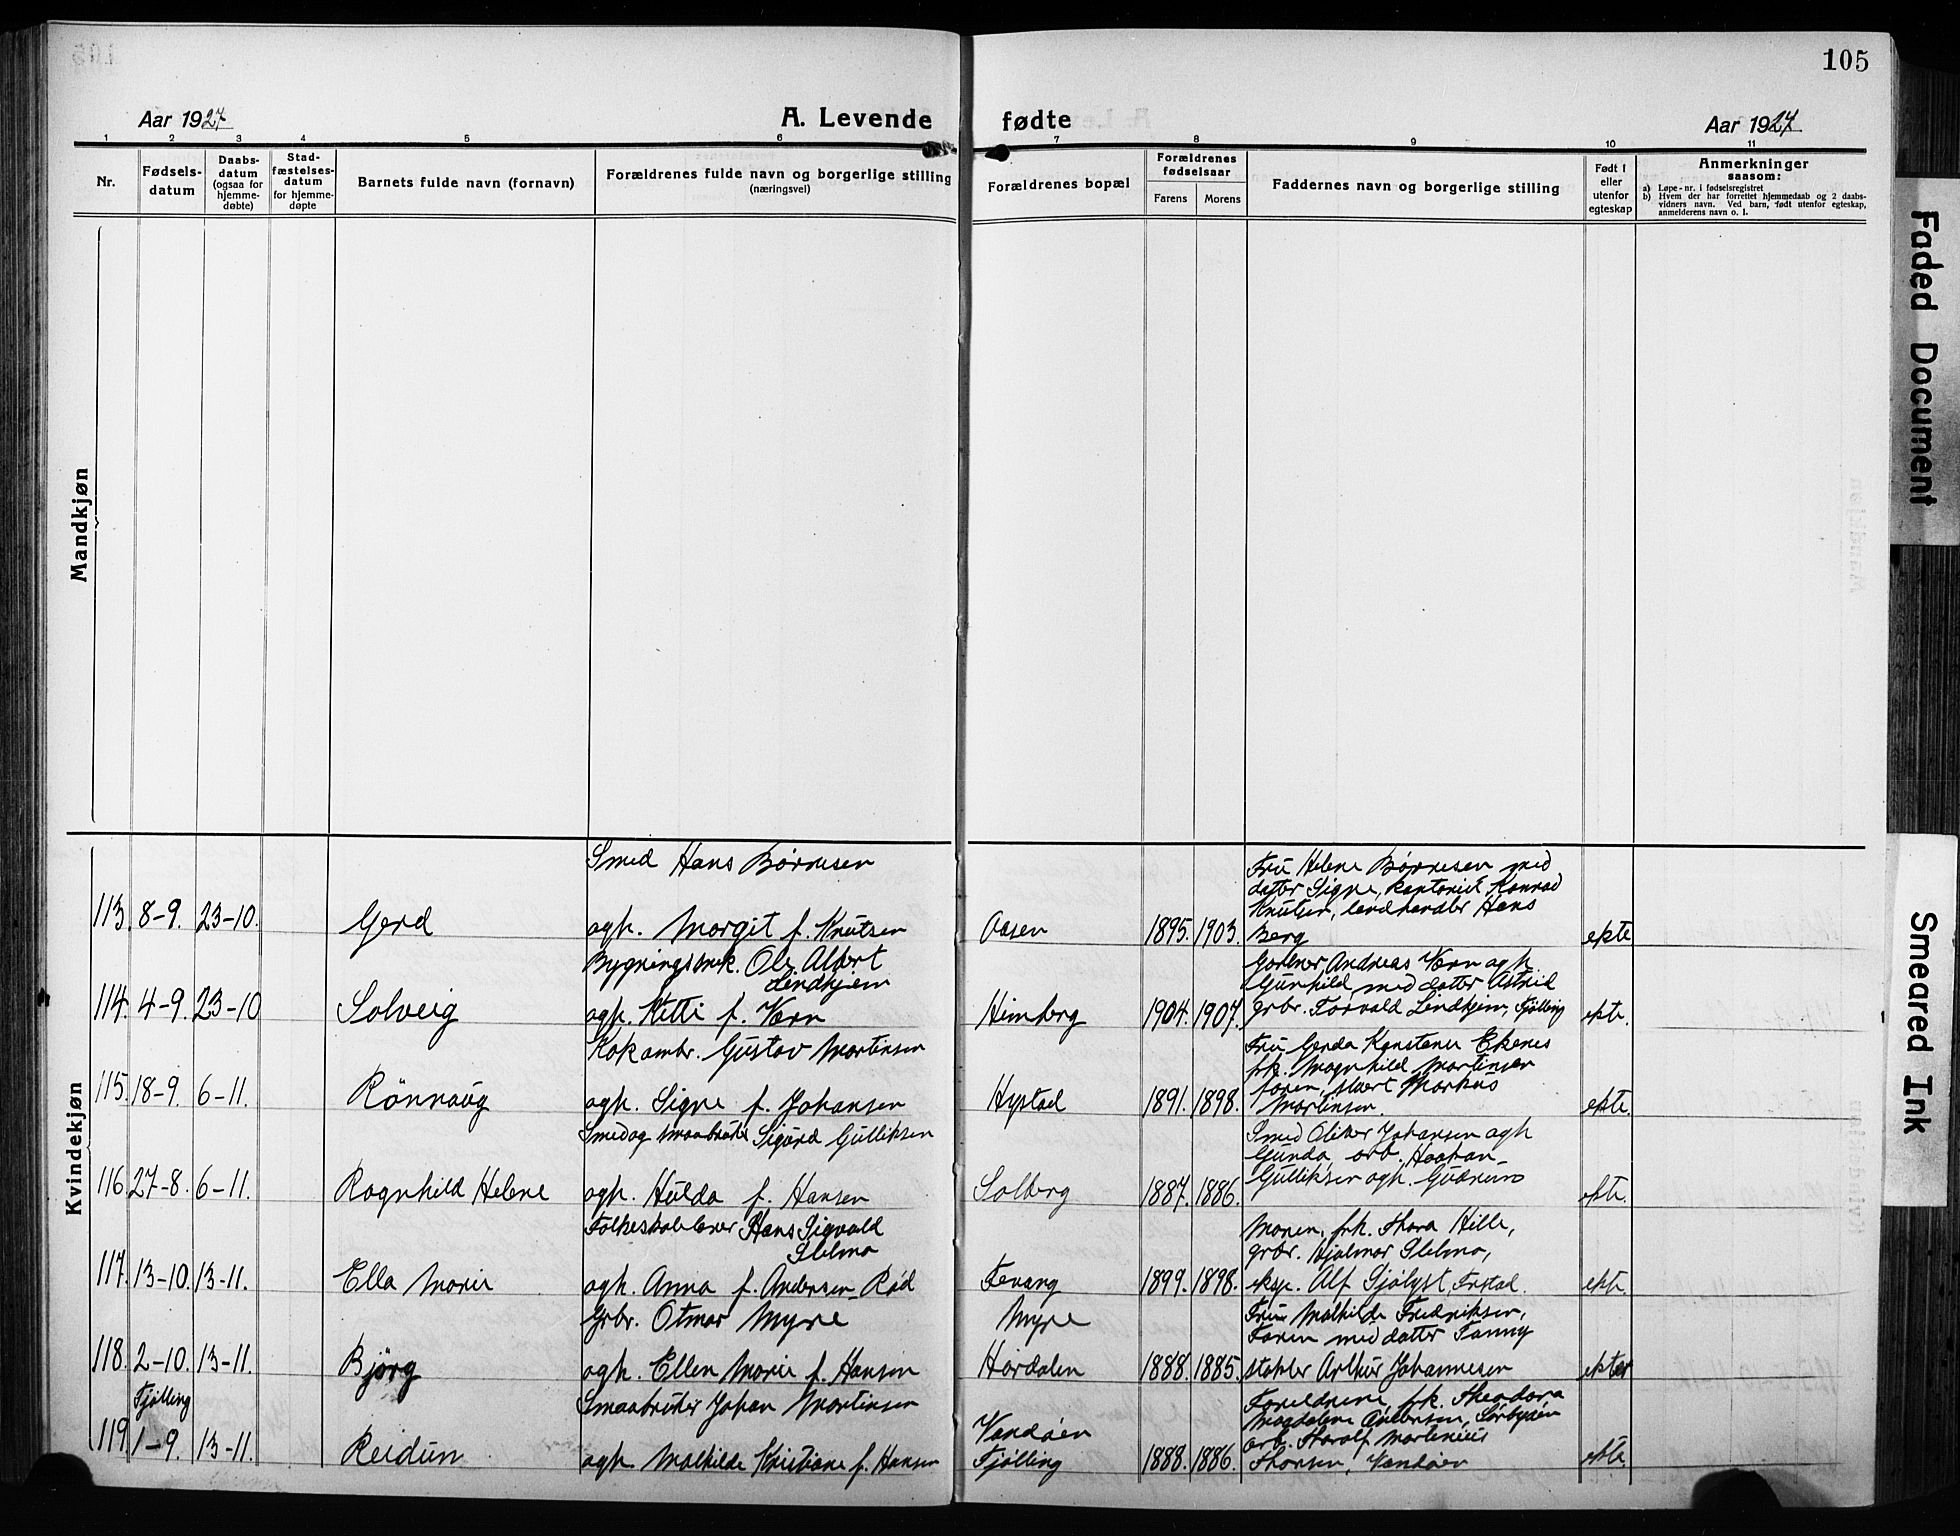 105
Aar 1927
A. Levende
fødte
Aar 1927
1 2 3 4 5 6 7 8 9 10 11
Nr.
Fødsels-
datum
Daabs-
datum
(ogsaa for
hjemme-
døbte)
Stad-
fæstelses-
datum
for hjemme-
døpte
Barnets fulde navn (fornavn)
Forældrenes fulde navn og borgerlige stilling
(næringsvei)
Forældrenes bopæl
Forældrenes
fødselsaar
Farens
Morens
Faddernes navn og borgerlige stilling
Født i
eller
utenfor
egteskap
Anmerkninger
saasom:
a) Løpe-nr. i fødselsregistret
b) Hvem der har forrettet hjemmedaab og 2 daabs-
vidners navn. Ved barn, født utenfor egteskap,
anmelderens navn o. l.
Mandkjøn
Kvindekjøn
113. 8-9. 23-10.
Gerd
Smed Hans Børresen
agh. Margit f. Knutsen
Aasen
1895. 1903.
Fru Helene Børresen med
datter Signe, kontorist Konrad
Knutsen, landhandler Hans
Berg
ekte
114. 4-9. 23-10
Solveig
Ole Albert
Lindhjem
agh. Kitti f. Værn
Himberg
1904. 1907.
Gartner Andreas Værn agh.
Gunhild med datter Astrid
grbr. Torvald Lindhjem, Fjølling
ekte.
115. 18-9. 6-11.
Rönnaug
Gustav Martinsen
agh. Signe f. Johansen
Hystad
1891. 1898.
Fru Gerda Konstanse Ekenes
frk. Magnhild Martinsen
faren, Markus
Martinsen.
ekte
116. 27-8. 6-11.
Ragnhild Helene
Smed og smaabruker Sigurd Gulliksen
agh. Hulda f. Hansen
Solberg
1887. 1886.
Smed Oliver Johansen agh
Gunda, arb. Haakan
Gulliksen agh. Gudrun
ekte.
117. 13-10. 13-11.
Ella Marie
Folkeskolelærer Hans Sigvald
agh. Anna f. Andersen Rød
Fevang
1899. 1898.
Moren, frk. Thora Hille,
grbr. Hjalmar
eksp. Alf Sjølyst,
ekte.
118. 2-10. 13-11.
Bjørg
Grbr. Otmar Myre
agh. Ellen Marie f. Hansen
Myre
Hørdalen
1888. 1885.
Fru Mathilde Fredriksen,
Faren med datter Fanny
Arthur Johannesen
ekte
Fjølling
119. 1-9. 13-11.
Reidun
Smaabruker Johan Martinsen
agh. Mathilde Kristiane f. Hansen
Vandøen
Fjølling
1888. 1886.
Foreldrene, frk. Theodora
Magdalene Andersen, Sørbyøen
arb. Tharalf Martinius
Thorsen, Vandøen
ekte
Faded Document
Smeared Ink